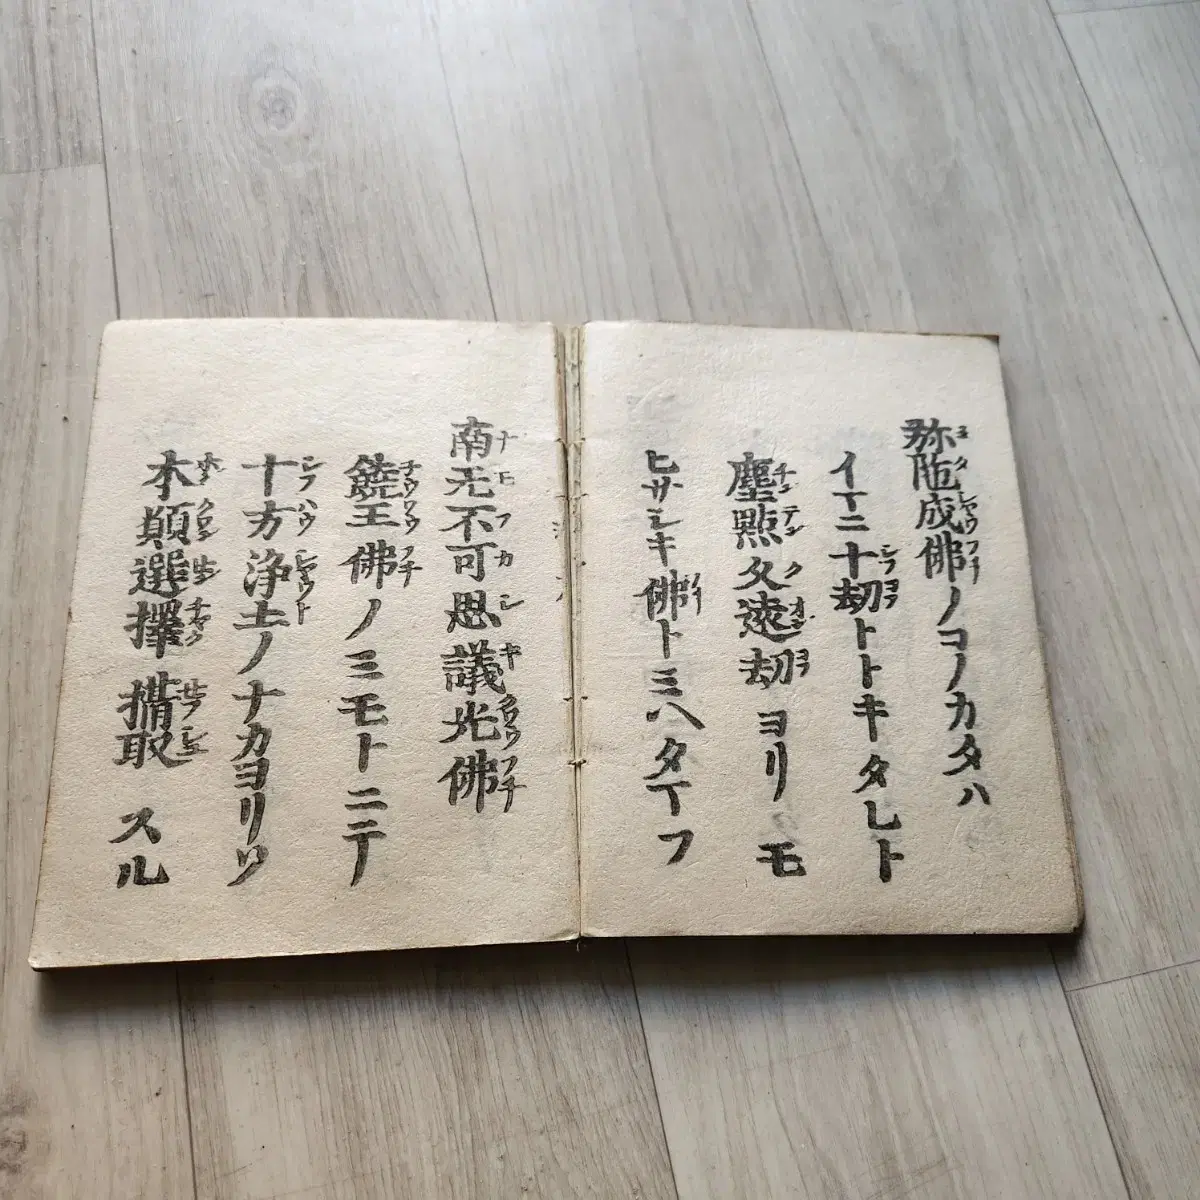 弥陀成佛ノコノカタハ
イマニ十劫トトキタレト
塵點久遠劫ヨリモ
ヒサシキ佛トミヘタマフ
南无不可思議光佛
饒王佛ノミモトニテ
十方浄土ノナカヨリソ
本願選擇攝取スル